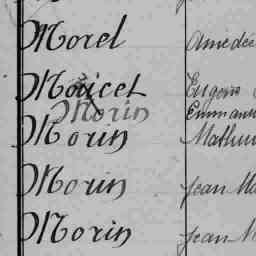 Morel Amédée
Moricet Eugène
Morin Emmanu
Morin Mathur
Morin Jean Ma
Morin Jean M